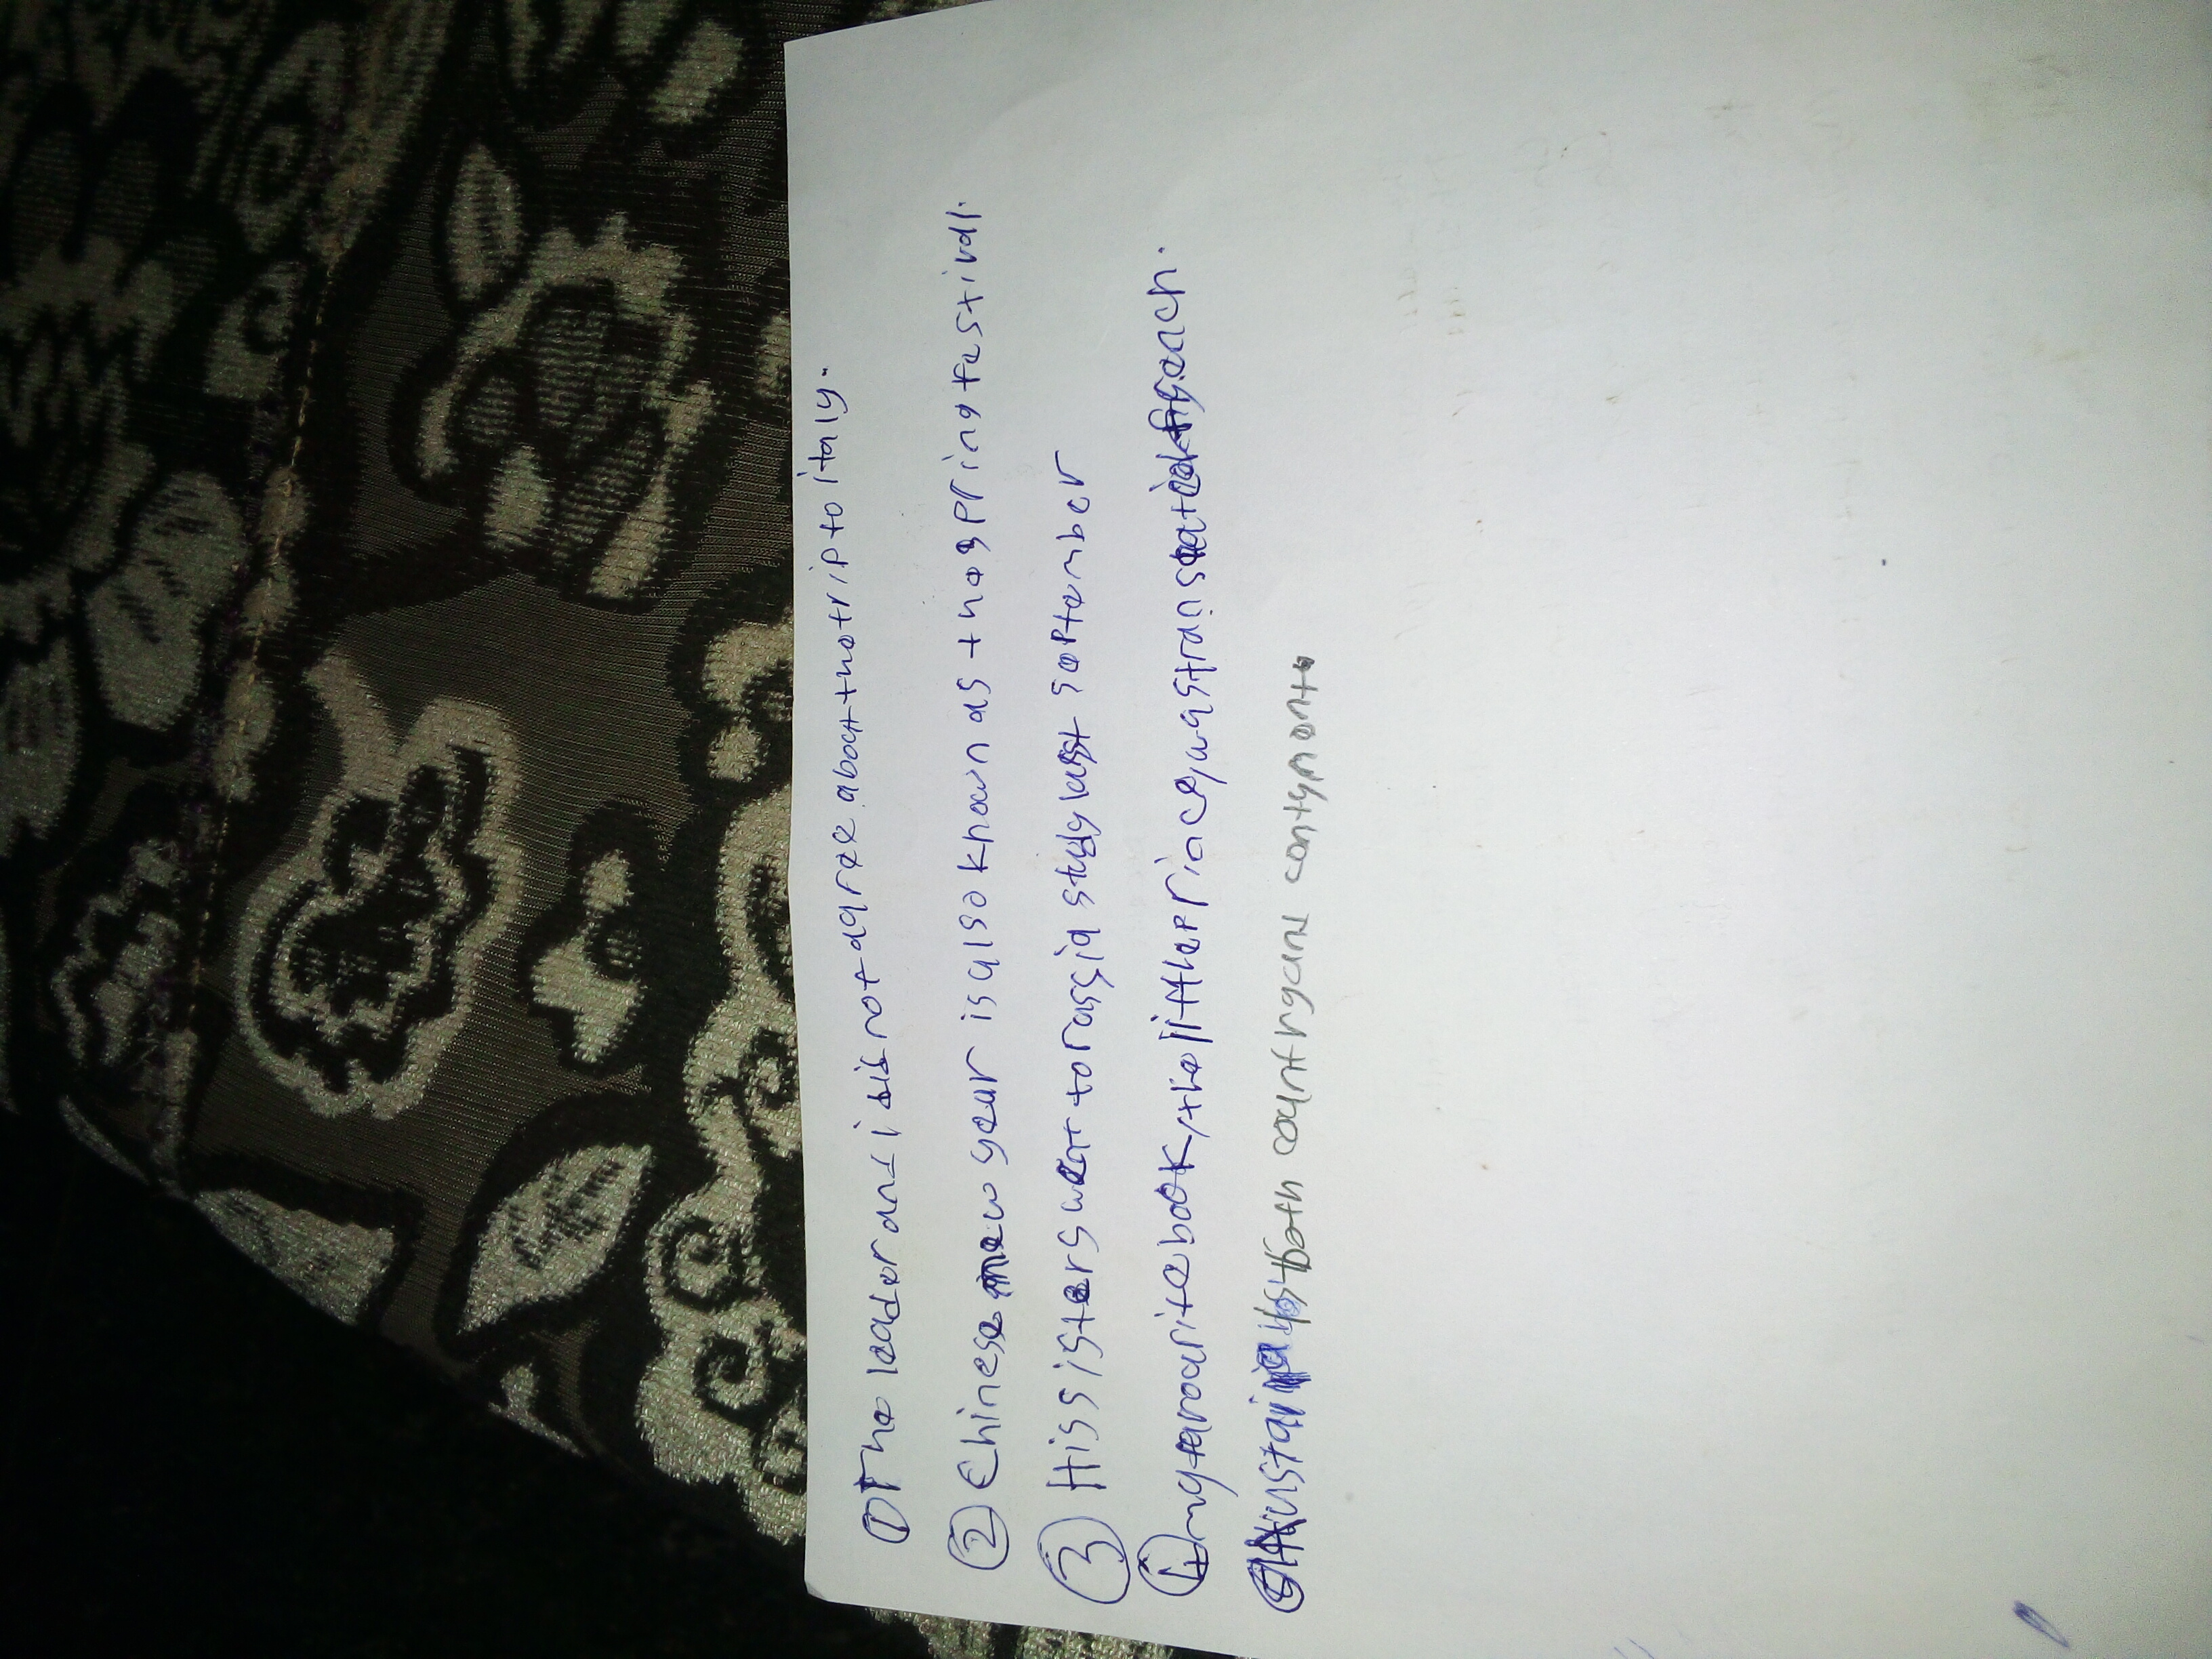 ① The leader and i did not agree about the trip to italy.
② Chinese new year is also known as the spring festival.
③ His sister went to russia study last september
④ my favourite book, the little prince, was translated french.
⑤ is both country and contynent